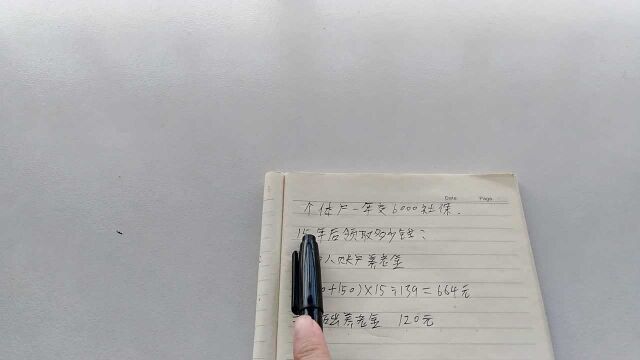 Date. Page.
个体户一年交6000社保.
15年后领取多少钱:
人账户养老金
0+150)×15÷139=664元
础养老金 120元